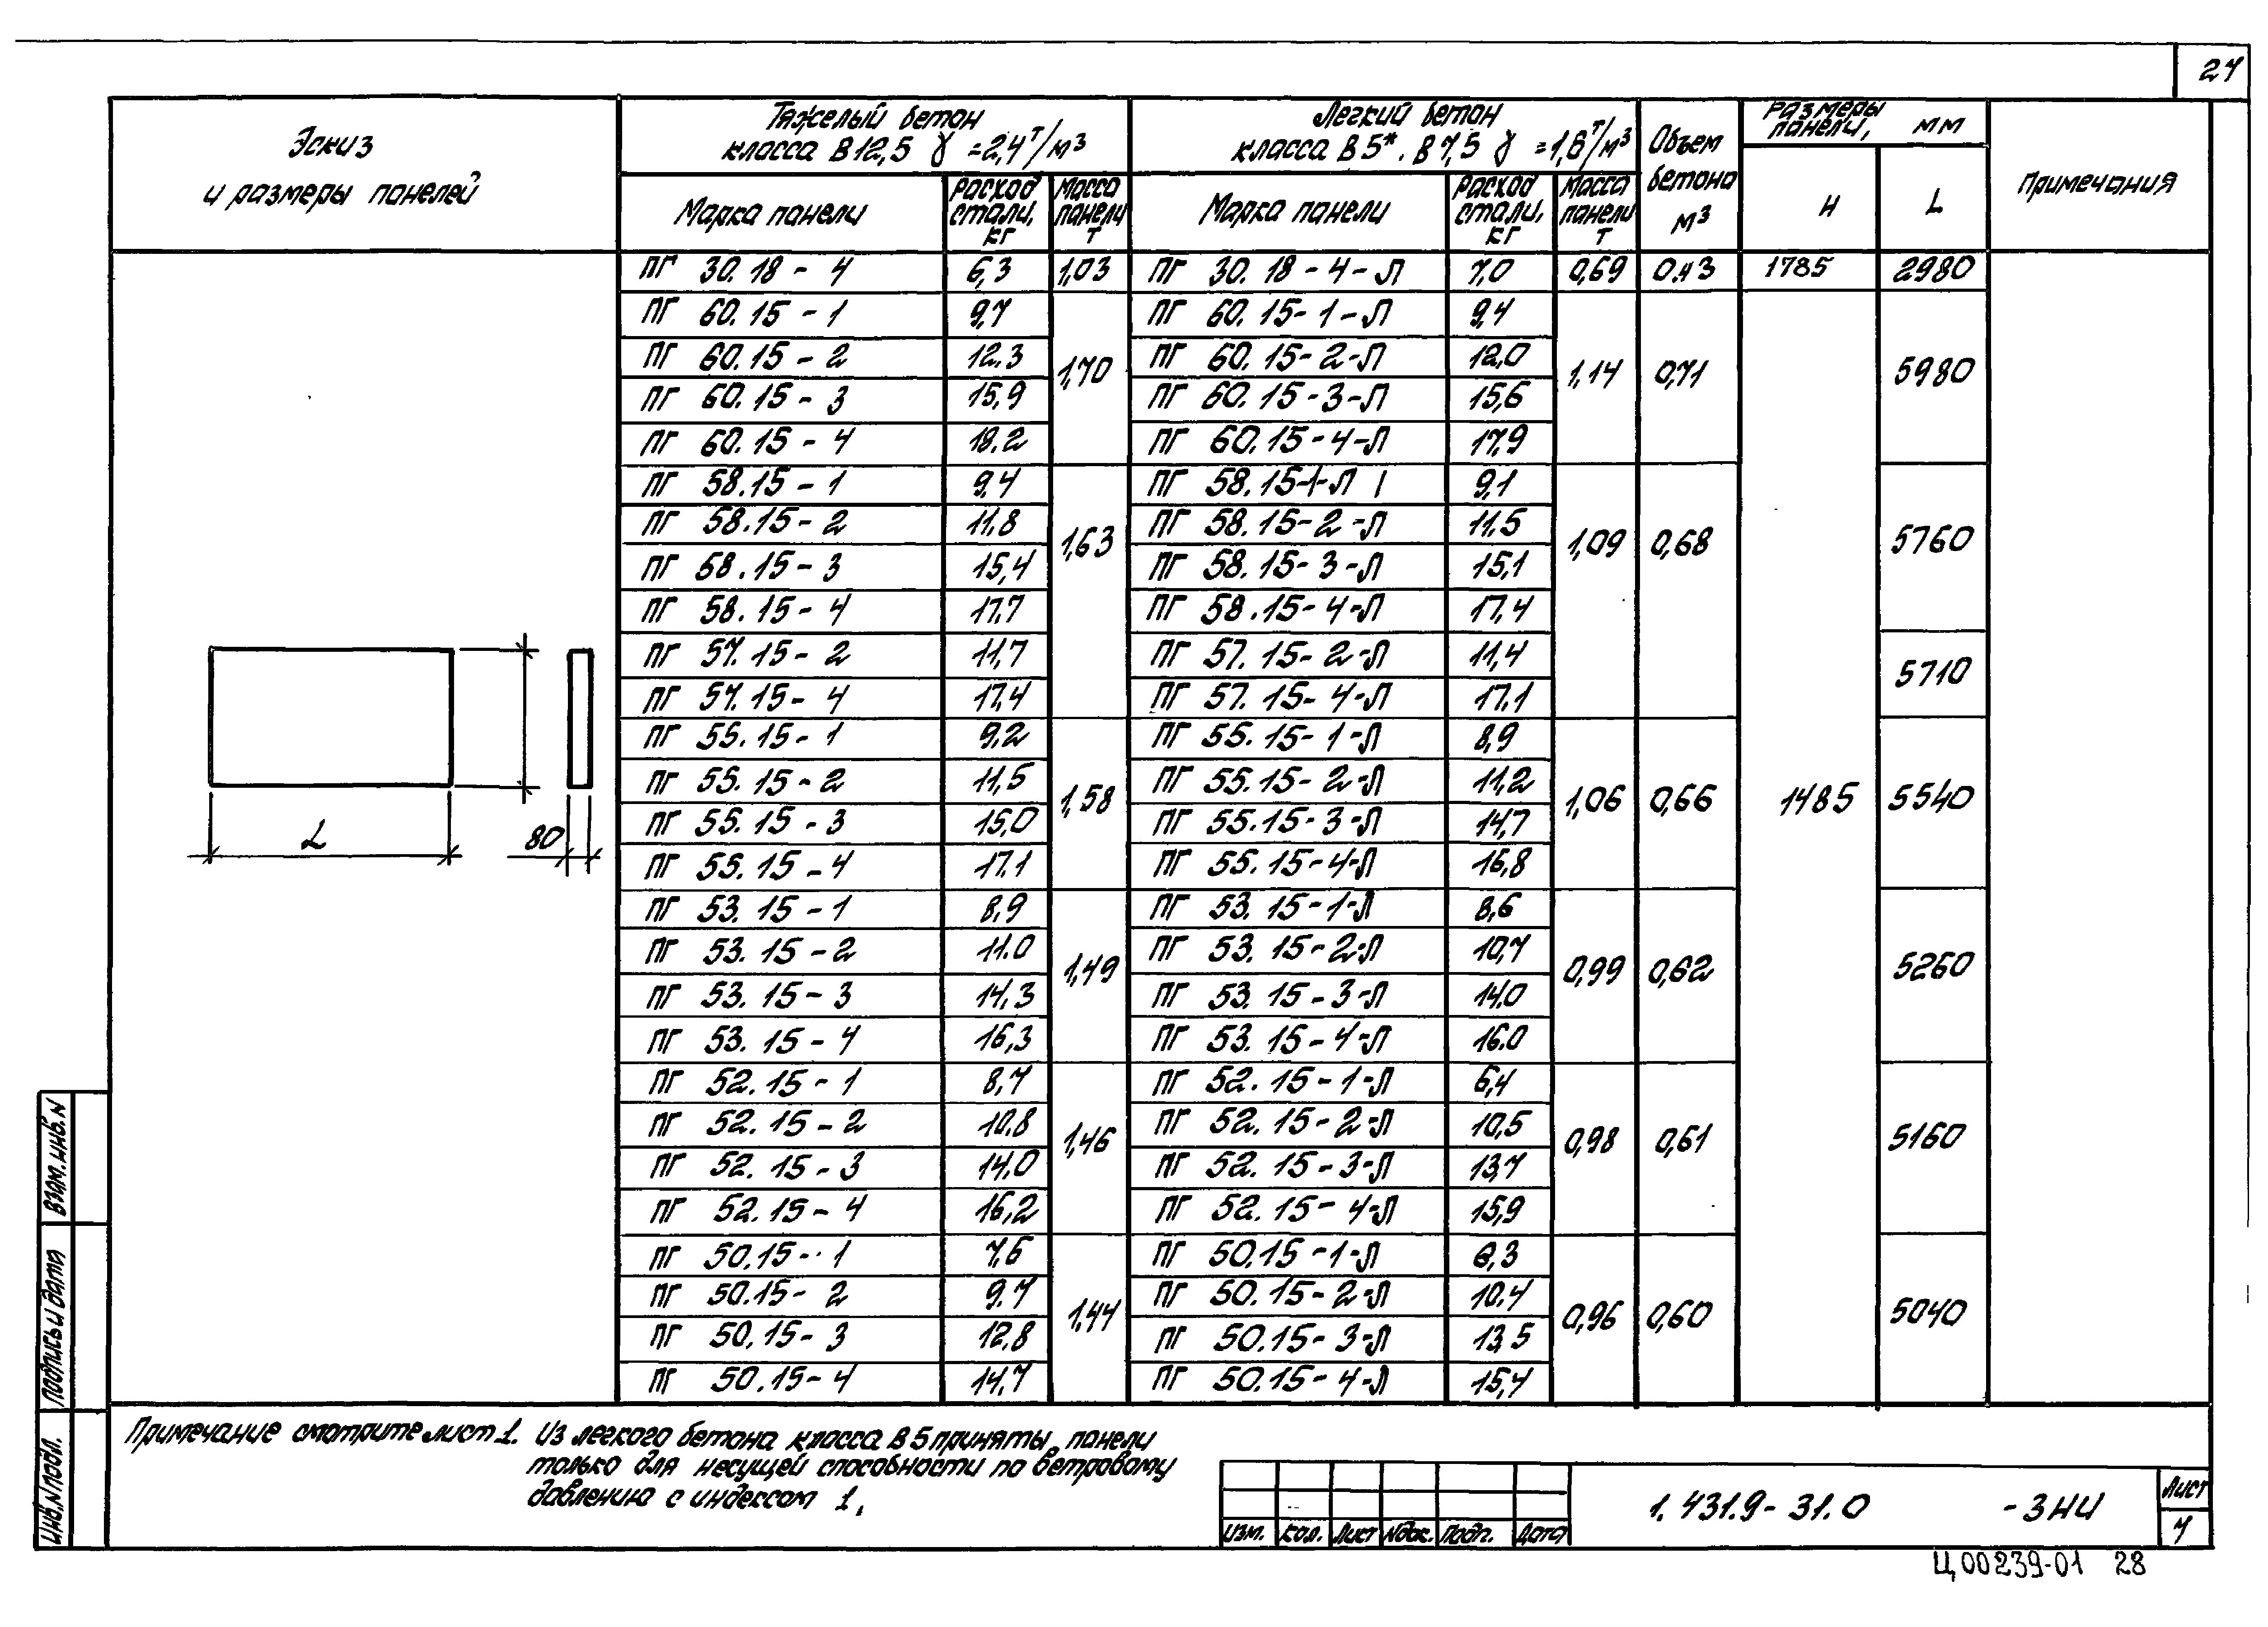 27
Эскиз и размеры панелей
Тяжелый бетон класса В12,5 γ =2,4 т/м³
Легкий бетон класса В5*. В7,5 γ =1,6 т/м³
Объем бетона м³
Размеры панели, мм
Примечания
Марка панели | Расход стали, кг | Масса панели т | Марка панели | Расход стали, кг | Масса панели т | H | L
ПГ 30.18-4 | 6,3 | 1,03 | ПГ 30.18-4-Л | 7,0 | 0,69 | 0.43 | 1785 | 2980
ПГ 60.15-1 | 9,7 | ПГ 60.15-1-Л | 9,4
ПГ 60.15-2 | 12.3 | 1,70 | ПГ 60.15-2-Л | 12,0 | 1,14 | 0,71 | 5980
ПГ 60.15-3 | 15,9 | ПГ 60.15-3-Л | 15,6
ПГ 60.15-4 | 18,2 | ПГ 60.15-4-Л | 17,9
ПГ 58.15-1 | 9,4 | ПГ 58.15-1-Л | 9,1
ПГ 58.15-2 | 11,8 | 1,63 | ПГ 58.15-2-Л | 11.5 | 1,09 | 0,68 | 5760
ПГ 58.15-3 | 15,4 | ПГ 58.15-3-Л | 15,1
ПГ 58.15-4 | 17,7 | ПГ 58.15-4-Л | 17,4
ПГ 57.15-2 | 11,7 | ПГ 57.15-2-Л | 11,4 | 5710
ПГ 57.15-4 | 17,4 | ПГ 57.15-4-Л | 17,1
ПГ 55.15-1 | 9,2 | ПГ 55.15-1-Л | 8,9
ПГ 55.15-2 | 11,5 | 1,58 | ПГ 55.15-2-Л | 11,2 | 1,06 | 0,66 | 1485 | 5540
ПГ 55.15-3 | 15,0 | ПГ 55.15-3-Л | 14,7
ПГ 55.15-4 | 17,1 | ПГ 55.15-4-Л | 16,8
ПГ 53.15-1 | 8,9 | ПГ 53.15-1-Л | 8,6
ПГ 53.15-2 | 11.0 | 1,49 | ПГ 53.15-2-Л | 10,7 | 0,99 | 0,62 | 5260
ПГ 53.15-3 | 14,3 | ПГ 53.15-3-Л | 14,0
ПГ 53.15-4 | 16,3 | ПГ 53.15-4-Л | 16.0
ПГ 52.15-1 | 8,7 | ПГ 52.15-1-Л | 6,4
ПГ 52.15-2 | 10,8 | 1,46 | ПГ 52.15-2-Л | 10,5 | 0,98 | 0,61 | 5160
ПГ 52.15-3 | 14,0 | ПГ 52.15-3-Л | 13,7
ПГ 52.15-4 | 16,2 | ПГ 52.15-4-Л | 15,9
ПГ 50.15-1 | 7,6 | ПГ 50.15-1-Л | 6,3
ПГ 50.15-2 | 9.7 | 1,44 | ПГ 50.15-2-Л | 10.4 | 0,96 | 0,60 | 5040
ПГ 50.15-3 | 12,8 | ПГ 50.15-3-Л | 13,5
ПГ 50.15-4 | 14,7 | ПГ 50.15-4-Л | 15,4
L
80
Примечание смотрите лист 1. Из легкого бетона класса В5 приняты панели
только для несущей способности по ветровому
давлению с индексом 1.
Взам. инв. N
Подпись и дата
Инв. N подл.
Изм. Кол. Лист Nдок. Подп. Дата
1.431.9-31.0 -3НИ
Лист
7
Ц00239-01 28